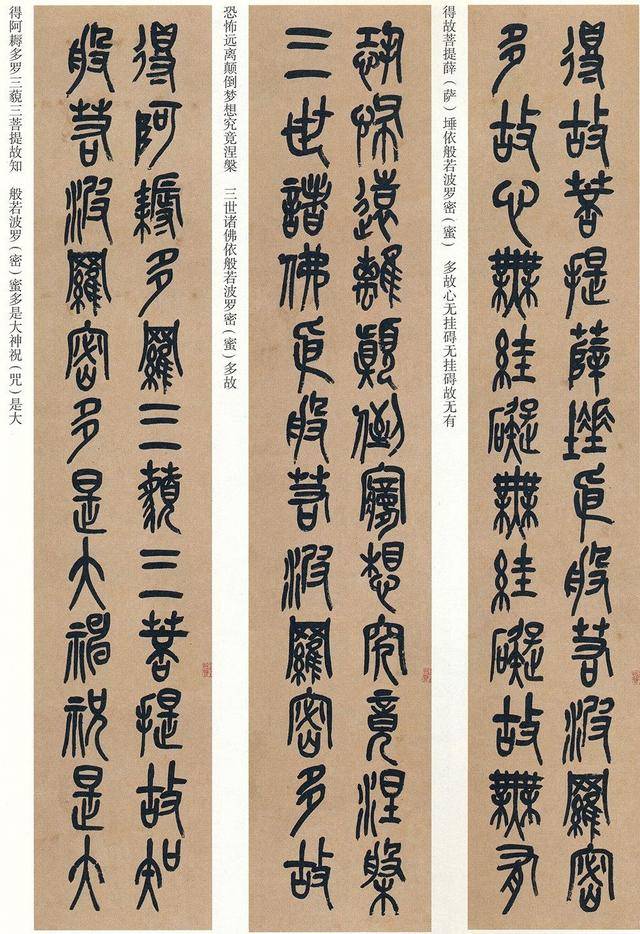 得故菩提薛埵依般若波羅密
多故心無絓礙無絓礙故無有
得故菩提薛（萨）埵依般若波罗密（蜜） 多故心无挂碍无挂碍故无有
恐怖遠離顛倒夢想究竟涅槃
三世諸佛依般若波羅密多故
恐怖远离颠倒梦想究竟涅槃 三世诸佛依般若波罗密（蜜）多故
得阿耨多羅三藐三菩提故知
般若波羅密多是大神祝是大
得阿耨多罗三藐三菩提故知 般若波罗（密）蜜多是大神祝（咒）是大